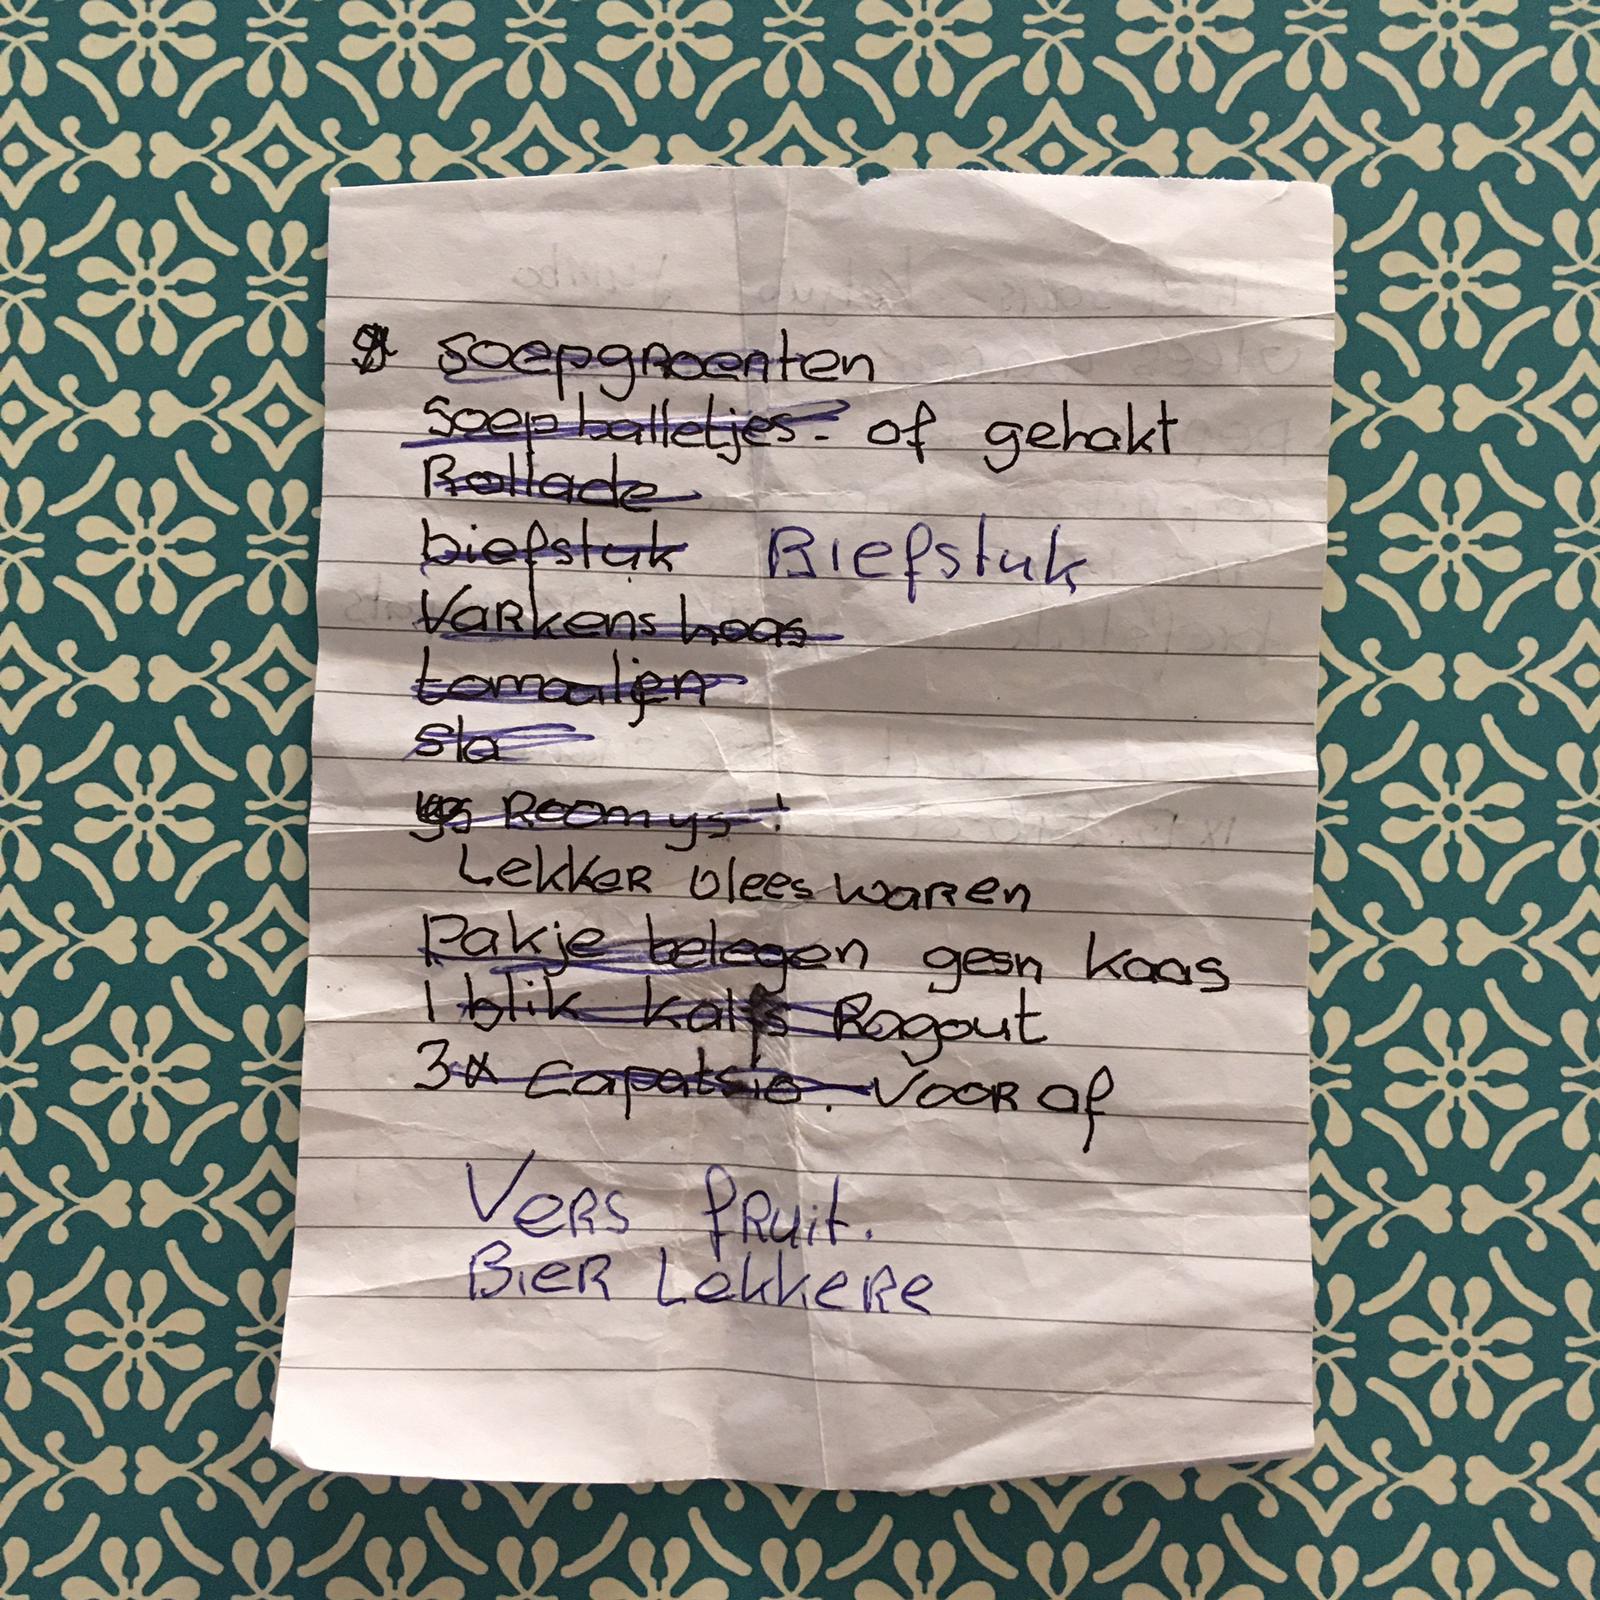 soepgroenten
soepballetjes - of gehakt
Rollade
biefstuk Biefstuk
Varkens haas
tomaatjen
sla
Roomys !
Lekker vleeswaren
Pakje belegen gesn kaas
1 blik kalfs Ragout
3x Capatsio. Voor af
Vers fruit.
Bier Lekkere